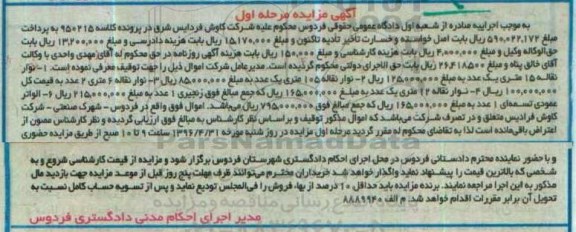 آگهی مزایده مرحله اول
به موجب اجرائیه صادره از شعبه اول دادگاه عمومی حقوقی فردوس محکوم علیه شرکت کاوش فردایس شرق در پرونده کلاسه ۹۵۰۲۱۵ به پرداخت
مبلغ ۵۹۰/۰۲۲/۱۷۲ ریال بابت اصل خواسته و خسارت تأخیر تادیه تاکنون و مبلغ ۱۵/۱۷۰/۰۰۰ ریال بابت هزینه دادرسی و مبلغ ۱۳/۲۰۰/۰۰۰ ریال بابت
حق الوکاله وکیل و مبلغ ۴/۰۰۰/۰۰۰ ریال بابت هزینه کارشناسی و مبلغ ۱۵۰/۰۰۰ ریال بابت هزینه آگهی روزنامه در حق محکوم له آقای مهدی واحدی با وکالت
آقای خالق پناه و مبلغ ۲۶/۴۱۸/۵۰۰ ریال بابت حق الاجرای دولتی محکوم گردیده است. مدیرعامل شرکت اموال ذیل را جهت توقیف معرفی نموده است: ۱- نوار
نقاله ۱۵ متری یک عدد به مبلغ ۱۲۵/۰۰۰/۰۰۰ ریال ۲- نوار نقاله ۱۰۵ متری یک عدد به مبلغ ۸۵/۰۰۰/۰۰۰ ریال ۳- نوار نقاله ۶ متری ۲ عدد به قیمت کل
۱۰۰/۰۰۰/۰۰۰ ریال ۴- نوار نقاله ۱۲ متری یک عدد به مبلغ ۱۶۵/۰۰۰/۰۰۰ ریال که جمع مبالغ فوق زنجیری ۱ عدد به مبلغ ۲۱۵/۰۰۰/۰۰۰ ریال ۶- الواتر
عمودی تسمه‌ای ۱ عدد به مبلغ ۱۶۵/۰۰۰/۰۰۰ ریال که جمع مبالغ فوق ۷۹۵/۰۰۰/۰۰۰ ریال می‌باشد. اموال فوق واقع در فردوس - شهرک صنعتی - شرکت
کاوش فرادیس متعلق و در تصرف شرکت می‌باشد که اموال مذکور توقیف و بر اساس نظر کارشناس به مبالغ فوق ارزیابی گردیده و نظر کارشناس مصون از
اعتراض باقی مانده است لذا به تقاضای محکوم له مقرر گردید مرحله اول مزایده در روز شنبه مورخه ۱۳۹۶/۴/۳۱ ساعت ۹ تا ۱۰ صبح از طریق مزایده حضوری
و با حضور نماینده محترم دادستانی فردوس در محل اجرای احکام دادگستری شهرستان فردوس برگزار شود و مزایده از قیمت کارشناسی شروع و به
شخصی که بالاترین قیمت را پیشنهاد نماید واگذار خواهد شد خریداران محترم می‌توانند ظرف مهلت پنج روز قبل از موعد مزایده جهت بازدید مال
مذکور به این اجرا مراجعه نمایند. برنده مزایده باید حداقل ۱۰ درصد از بهاء فروش را فی‌المجلس تودیع نماید و پس از تسویه حساب کامل نسبت به
تحویل آن برابر مقررات اقدام خواهد شد. م الف ۸۸۸۹۹۴۰
مدیر اجرای احکام مدنی دادگستری فردوس
ParsNamadData